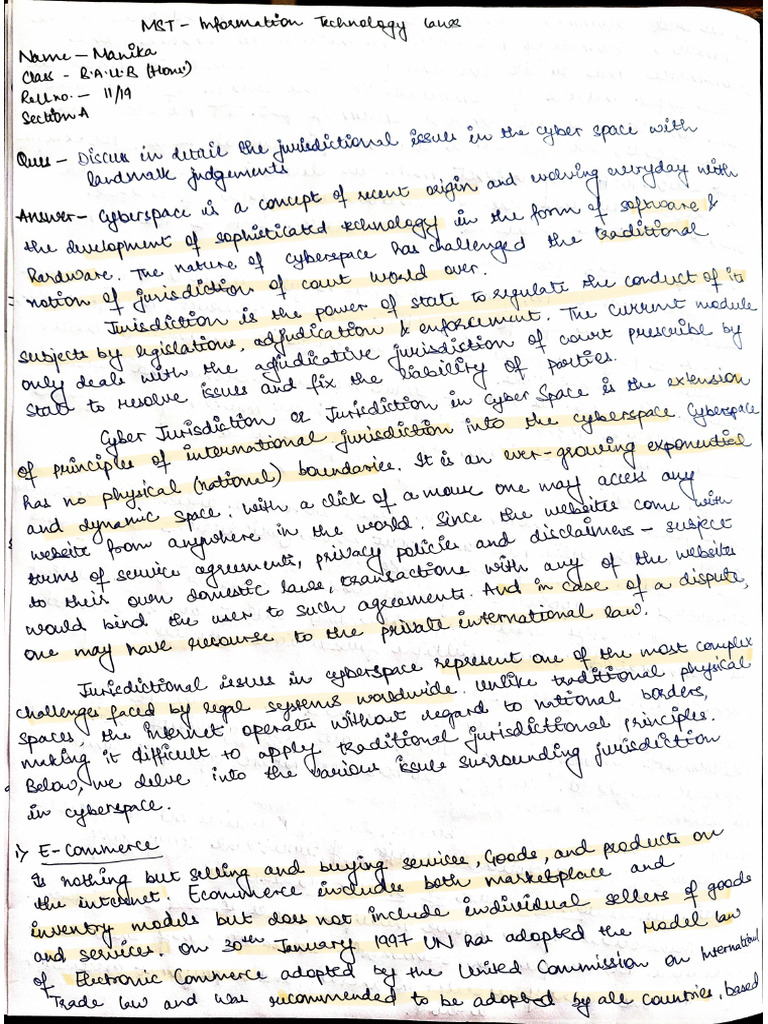 MST - Information Technology Laws
Name - Manika
Class - B.A.LL.B (Hons.)
Roll no. - 11/19
Section A
Ques - Discuss in detail the jurisdictional issues in the cyber space with
landmark judgements
Answer - Cyberspace is a concept of recent origin and evolving everyday with
the development of sophisticated technology in the form of software &
hardware. The nature of cyberspace has challenged the traditional
notion of jurisdiction of court world over.
Jurisdiction is the power of state to regulate the conduct of its
subjects by legislations, adjudication & enforcement. The current module
only deals with the adjudicative jurisdiction of court prescribe by
State to resolve issues and fix the liability of parties.
Cyber Jurisdiction or Jurisdiction in Cyber Space is the extension
of principles of international jurisdiction into the cyberspace. Cyberspace
has no physical (national) boundaries. It is an ever-growing exponential
and dynamic space. With a click of a mouse one may access any
website from anywhere in the world. Since the websites come with
terms of service agreements, privacy policies and disclaimers - subject
to their own domestic laws, transactions with any of the websites
would bind the user to such agreements. And in case of a dispute,
one may have recourse to the private international law.
Jurisdictional issues in cyberspace represent one of the most complex
challenges faced by legal systems worldwide. Unlike traditional physical
spaces, the internet operate without regard to national borders,
making it difficult to apply traditional jurisdictional principles.
Below, we delve into the various issue surrounding jurisdiction
in cyberspace.
i) E-Commerce
Is nothing but selling and buying services, Goods, and products on
the internet. Ecommerce includes both marketplace and
inventory models but does not include individual sellers of goods
and services. On 30th January 1997 UN has adopted the Model law
of Electronic Commerce adopted by the United Commission on International
Trade law and was recommended to be adopted by all countries, based